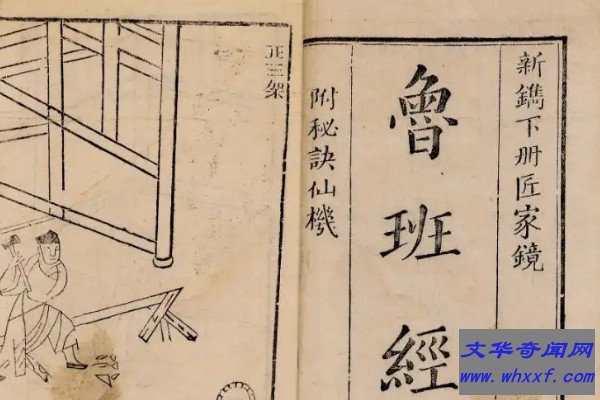 新鐫下册匠家鏡
魯班經
附秘訣仙機
正三架
文华奇闻网
www.whxxf.com